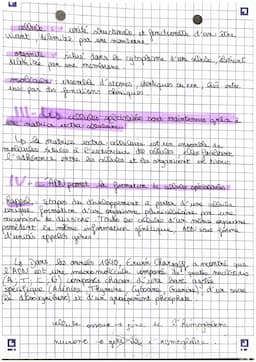 cellule : unité structurale et fonctionnelle d'un être
vivant délimitée par une membrane
organite : situé dans le cytoplasme d'une cellule,
délimité par une membrane
molécule : ensemble d'atomes, identiques ou non, liés entre
eux par des liaisons chimiques
III - Les cellules spécialisées sont maintenues grâce à
une matrice extra cellulaire
La matrice extra-cellulaire est un ensemble de
molécules situées à l'extérieur des cellules. Elles
l'adhérence entre les cellules et les organisent en tissus
IV - L'ADN permet la formation de cellules spécialisées
Rappel : étapes du développement à partir d'une cellule
unique, formation d'un organisme pluricellulaire par une
succession de divisions. Toutes les cellules d'un même organisme
possèdent la même information génétique, ADN sous forme
d'unités appelées gènes.
Dans les années 1940, Erwin Chargaff, a montré que
l'ADN est une macromolécule composée de quatre nucléotides
(A, T, C, G) composés chacun d'une base azotée
spécifique (Adénine, Thymine, Cytosine, Guanine) d'un sucre
(le désoxyribose) et d'un groupement phosphate.
cellule